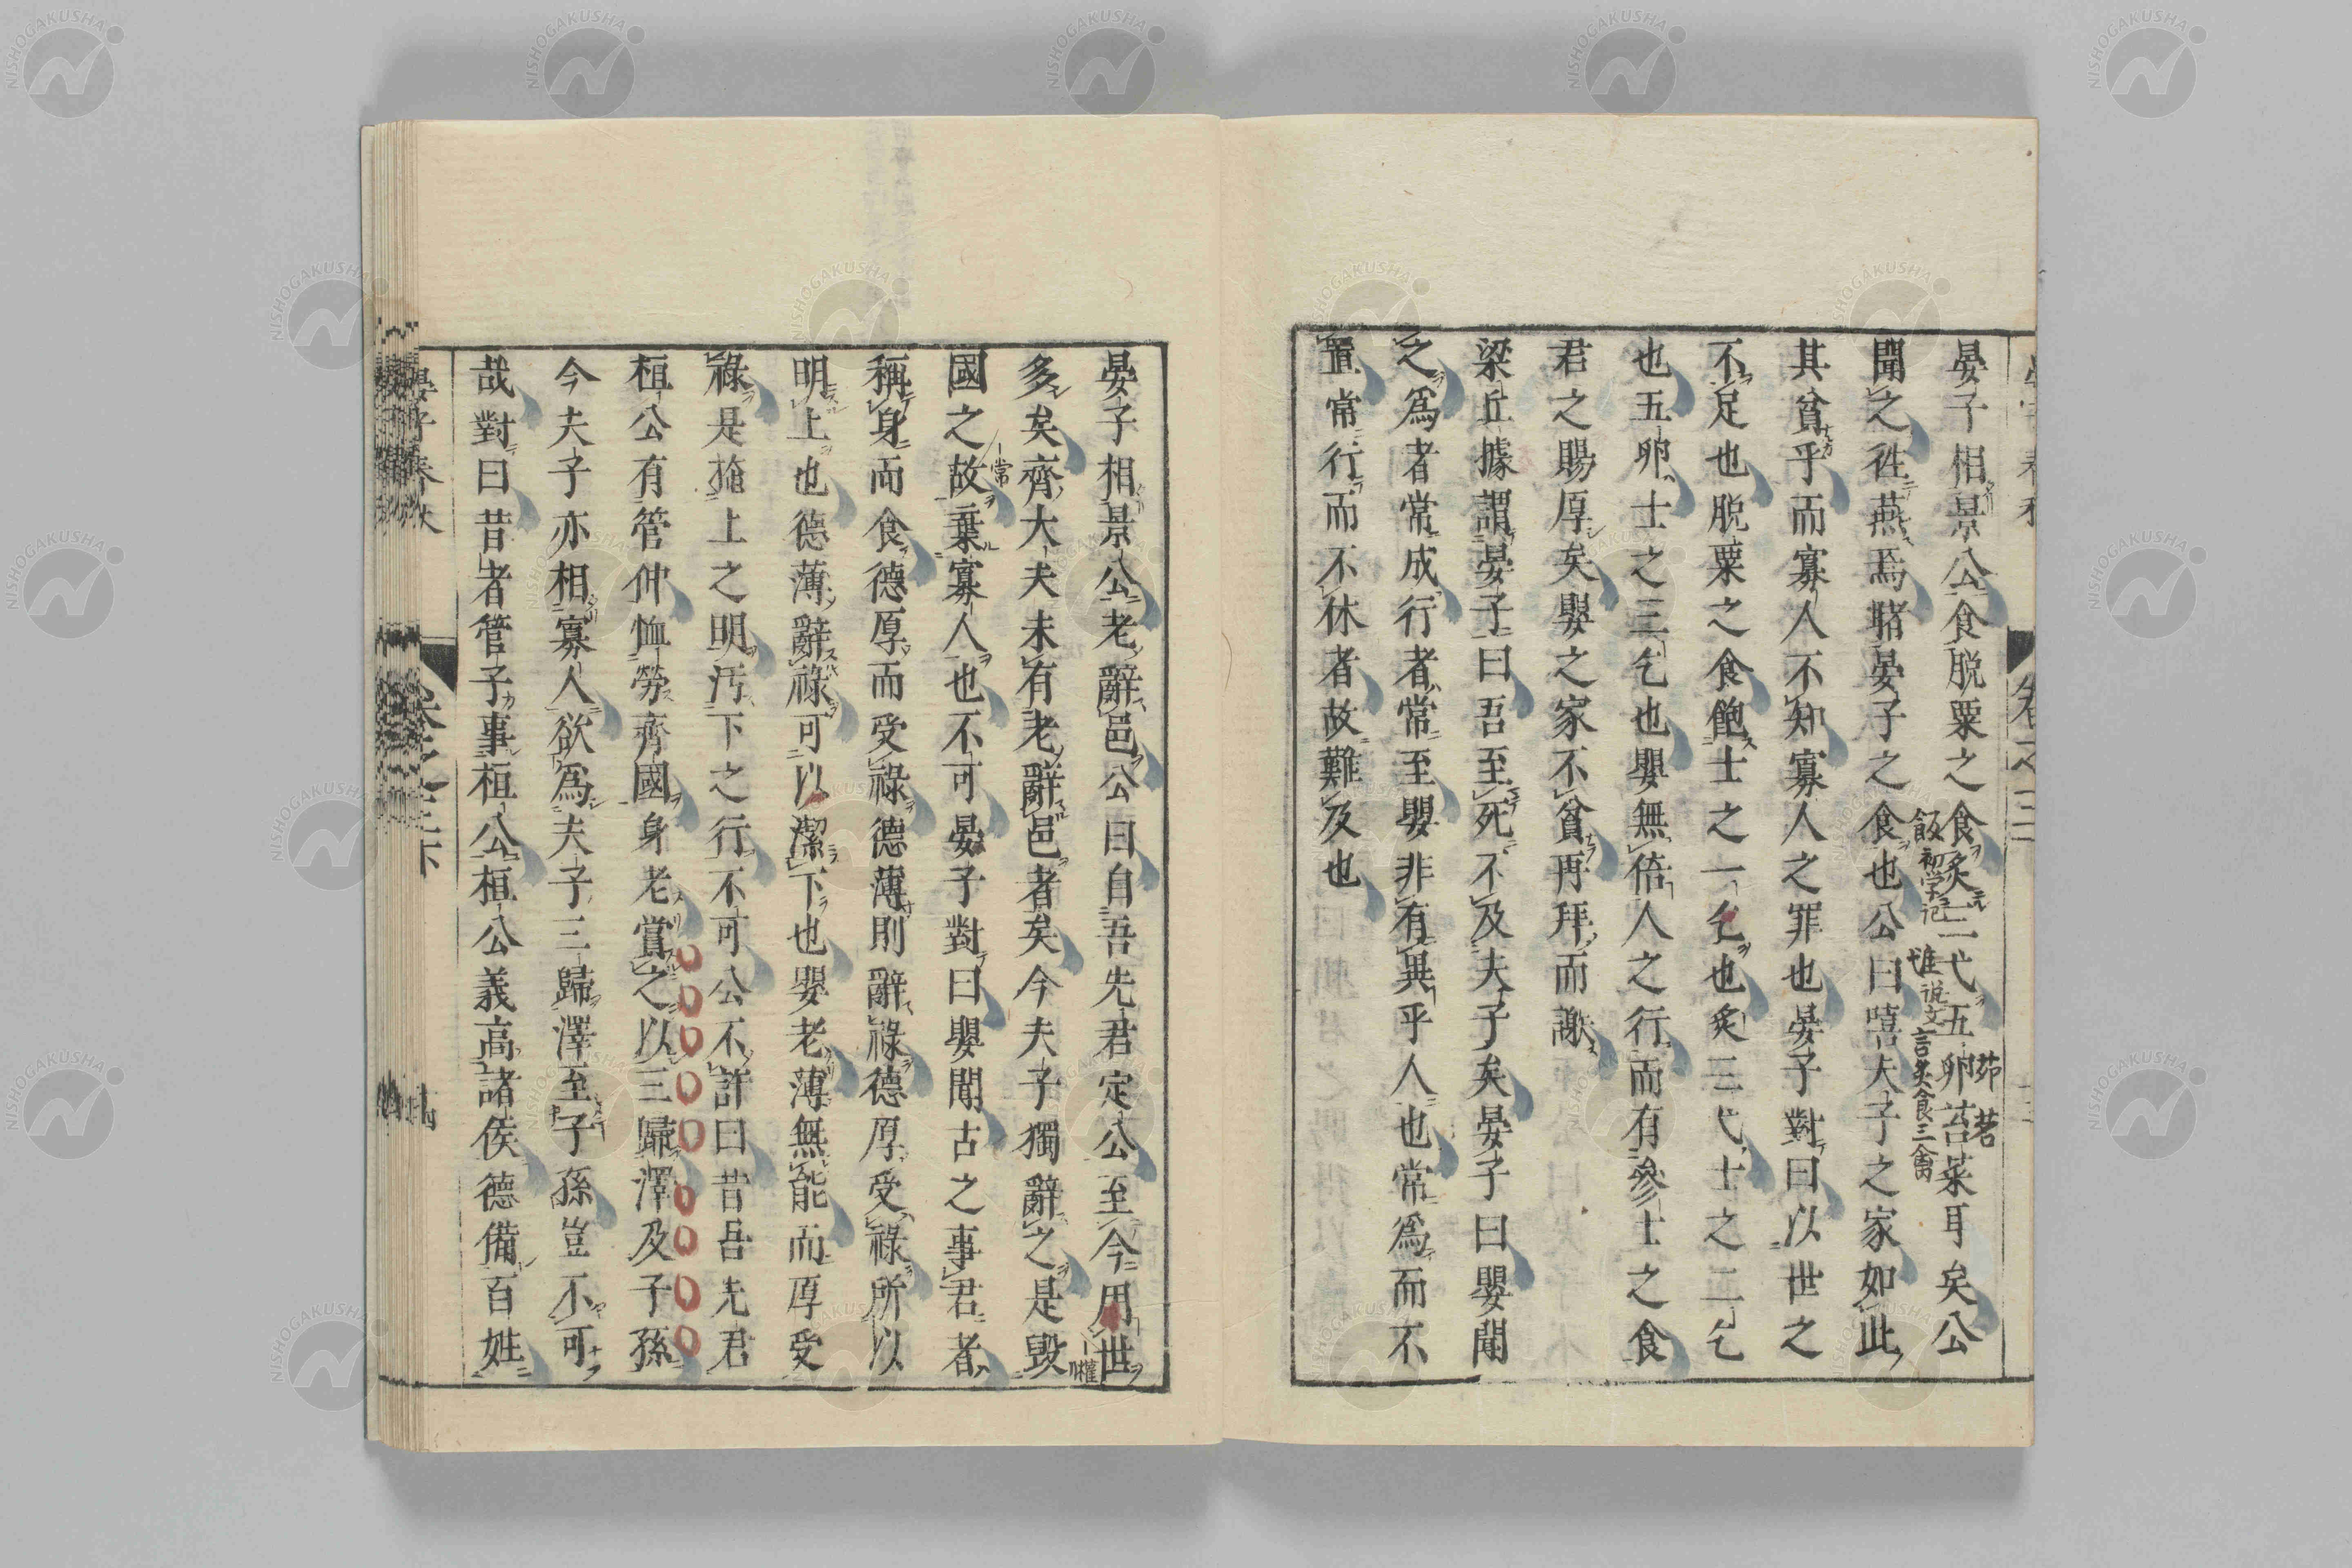 晏子相景公食脱粟之食炙三弋五卵苔菜耳矣公
聞之往燕焉睹晏子之食也公曰嘻夫子之家如此
其貧乎而寡人不知寡人之罪也晏子對曰以世之
不足也脱粟之食飽士之一乞也炙三弋士之二乞
也五卵士之三乞也嬰無倍人之行而有參士之食
君之賜厚矣嬰之家不貧再拜而謝
梁丘據謂晏子曰吾至死不及夫子矣晏子曰嬰聞
之爲者常成行者常至嬰非有異乎人也常爲而不
置常行而不休者故難及也
飯初学记
茆
茗
晏子相景公老辭邑公曰自吾先君定公至今用世
多矣齊大夫未有老辭邑者矣今夫子獨辭之是毀
國之故棄寡人也不可晏子對曰嬰聞古之事君者
稱身而食德厚而受祿德薄則辭祿德厚受祿所以
明上也德薄辭祿可以潔下也嬰老薄無能而厚受
祿是掩上之明汚下之行不可公不許曰昔吾先君
桓公有管仲恤勞齊國身老賞之以三歸澤及子孫
今夫子亦相寡人欲爲夫子三歸澤至子孫豈不可
哉對曰昔者管子事桓公桓公義高諸侯德備百姓
常
權
NISHOGAKUSHA